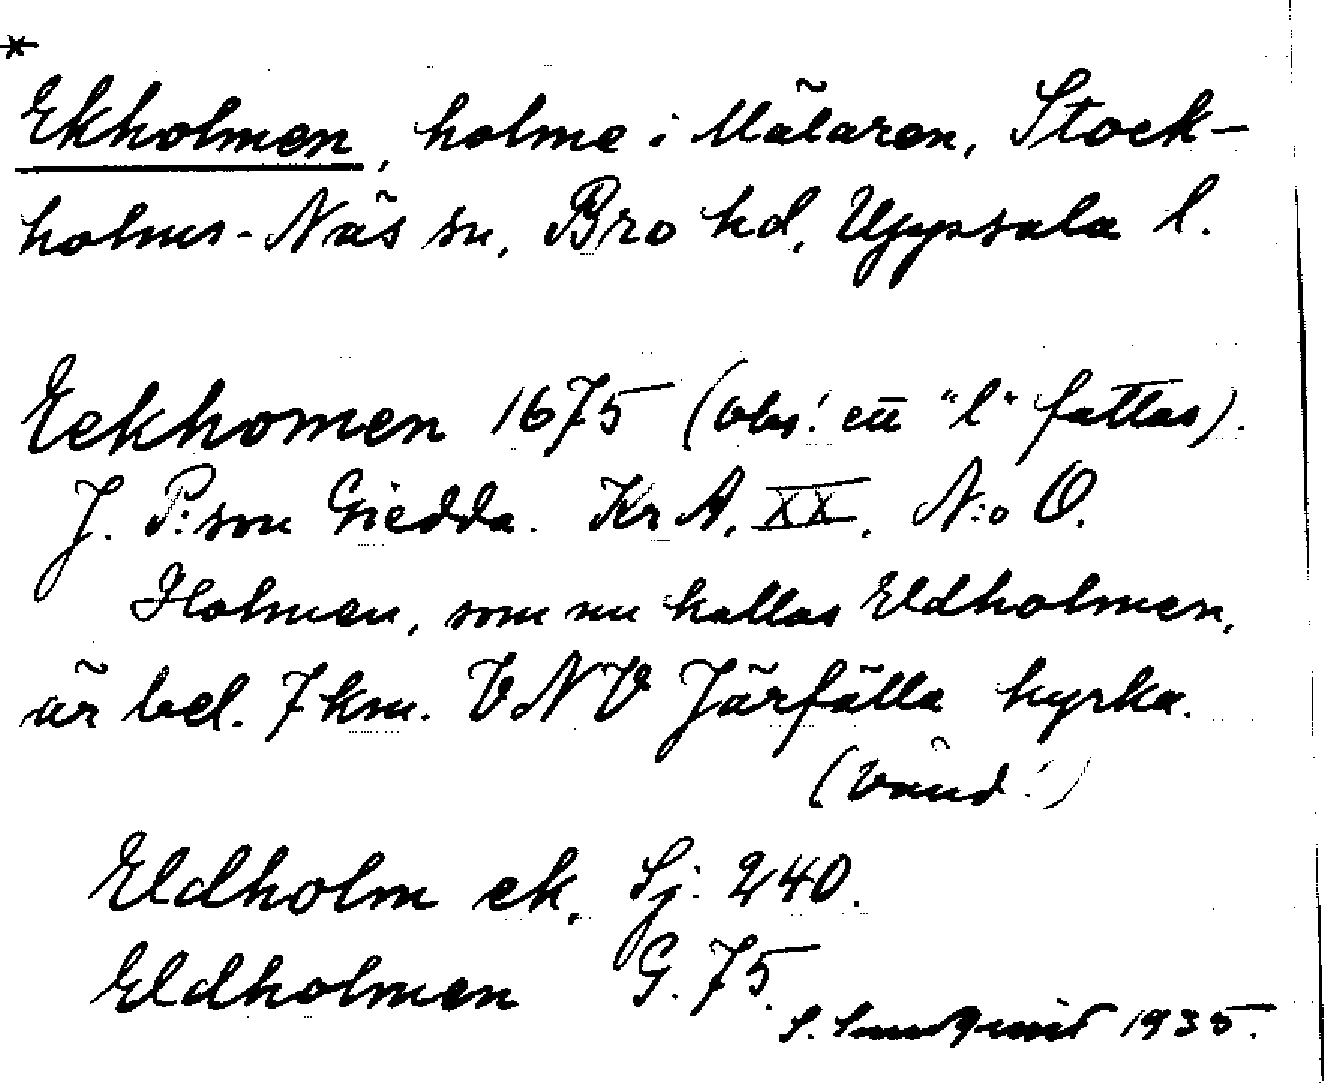 *
Ekholmen, holme i Mälaren, Stock-
holms-Näs sn, Bro hd, Uppsala l.
Eekhomen 1675 (obs! ett "l" fattas).
J. P:son Giedda. KrA, XX, N:o O.
Holmen, som nu kallas Eldholmen,
är bel. 7 km. VNV Järfälla kyrka.
(Vänd!)
Eldholm ek. Sj. 240.
Eldholmen G. 75.
S. Sundqvist 1935.